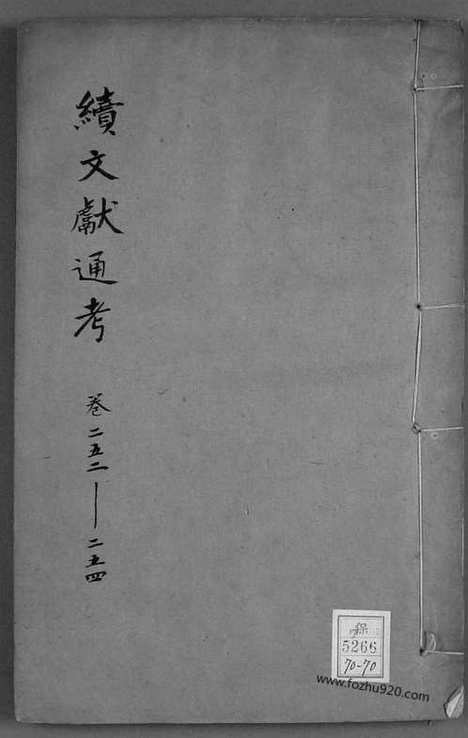 續文獻通考
卷二五二—二五四
保
5266
70-70
www.fozhu920.com